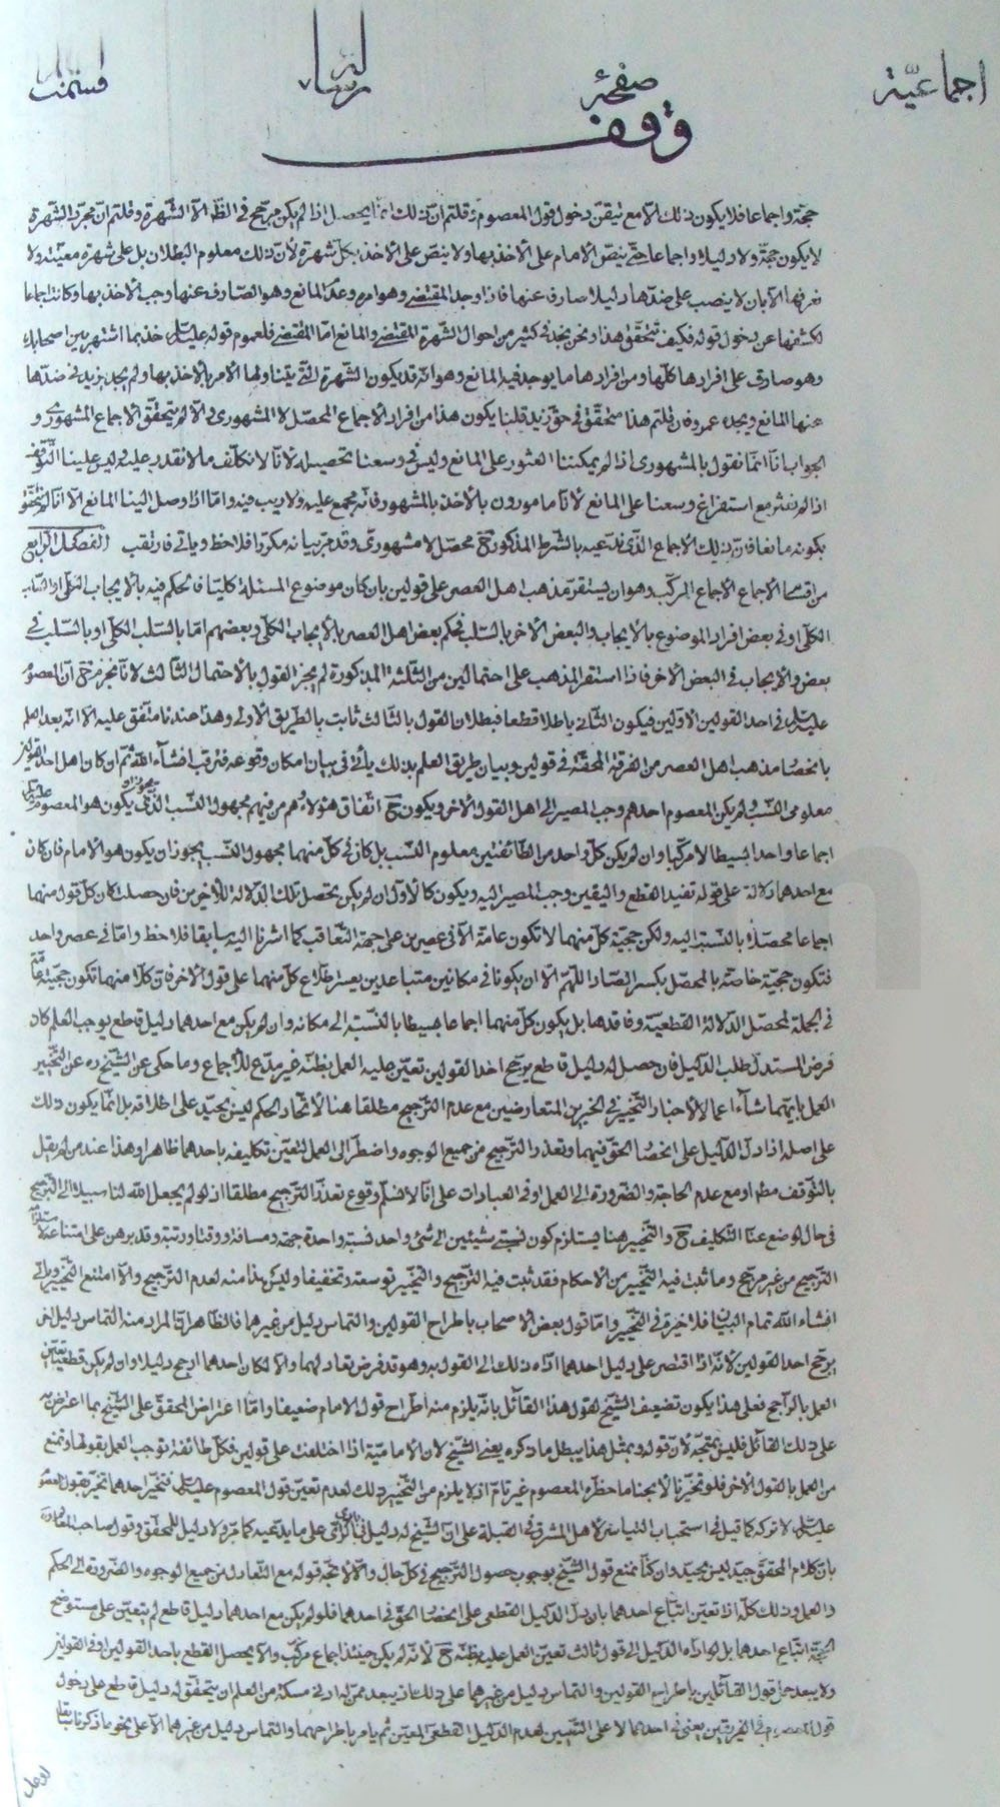 اجماعية
صفحة
وقف
حجة واجماعا فلا يكون ذلك الا مع تيقن دخول قول المعصوم قلتم ان ذلك انما يحصل اذا لم يكن مرجح في الظ الا الشهرة وقلتم ان مجرد الشهرة
لا يكون حجة ولا دليلا واجماعا حتى ينص الامام على الاخذ بها ولا ينص على الاخذ بكل شهرة لان ذلك معلوم البطلان بل على شهرة معينة ولا
نعرفها الا بان لا ينصب على ضدها دليلا صارف عنها فاذا وجد المقتضى وهو امره وعدم المانع وهو الصارف عنها وجب الاخذ بها وكانت اجماعا
لكشفها عن دخول قوله فكيف تحقق هذا ونحن نجد في كثير من احوال الشهرة المقتضى والمانع اما المقتضى فلعموم قوله خذ بما اشتهر بين اصحابك
وهو صادق على افرادها كلها ومن افرادها ما يوجد فيه المانع وهو انه قد يكون الشهرة التي يتناولها الامر بالاخذ بها ولم يجد زيد في ضدها
عنها المانع ويجده عمرو فان قلتم هذا متحقق في حق زيد قلنا يكون هذا من افراد الاجماع المحصل لا المشهوري والا لم يتحقق الاجماع المشهوري و
الجواب انا انما نقول بالمشهوري اذا لم يمكننا العثور على المانع وليس في وسعنا تحصيله لانا لا نكلف ما لا نقدر عليه وليس علينا التوقف
اذا لم نعثر مع استفراغ وسعنا على المانع لانا مامورون بالاخذ بالمشهور فانه مجمع عليه ولا ريب فيه واما اذا وصل الينا المانع الا انا لم نتحقق
بكونه مانعا فان ذلك الاجماع الذي ندعيه بالشرط المذكور ح محصل لا مشهوري وقد مر بيانه مكررا فلاحظ وياتي فارتقب الفصل الرابع
من اقسام الاجماع الاجماع المركب وهو ان يستقر مذهب اهل العصر على قولين بان كان موضوع المسئلة كليا فالحكم فيه بالايجاب الكلي او السلب
الكلي او في بعض افراد الموضوع بالايجاب والبعض الاخر بالسلب فحكم بعض اهل العصر بالايجاب الكلي وبعضهم اما بالسلب الكلي او بالسلب في
بعض والايجاب في البعض الاخر فاذا استقر المذهب على احتمالين من الثلثة المذكورة لم يجز القول بالاحتمال الثالث لانا نجزم ح ان المعصوم
في احد القولين الاولين فيكون الثاني باطلا قطعا فبطلان القول بالثالث ثابت بالطريق الاولى وهذا عندنا متفق عليه الا انه بعد العلم
بانحصار مذهب اهل العصر من الفرقة المحقة في قولين وبيان طريق العلم بذلك ياتي في بيان امكان وقوعه فترقب انشاء الله ثم ان كان اهل احد القولين
معلومي النسب ولم يكن المعصوم احدهم وجب المصير الى اهل القول الاخر ويكون ح اتفاق هؤلاء هم من فيهم مجهول النسب الذي يجوز ان يكون هو المعصوم
اجماعا واحدا بسيطا لا مركبا وان لم يكن كل واحد من الطائفتين معلوم النسب بل كان في كل منهما مجهول النسب يجوز ان يكون هو الامام فان كان
مع احدهما دلالة على قوله تفيد القطع واليقين وجب المصير اليه ويكون كالاول وان لم يكن تحصل تلك الدلالة للاخرين فان حصلت كان كل قول منهما
اجماعا محصلا بالنسبة اليه ولكن حجية كل منهما لا تكون عامة الا في عصرين على جهة التعاقب كما اشرنا اليه سابقا فلاحظ واما في عصر واحد
فتكون حجية خاصة بالمحصل بكسر الصاد اللهم الا ان يكونا في مكانين متباعدين يعسر اطلاع كل منهما على قول الاخر فان كلا منهما تكون حجية عامة
في الجملة لمحصل الدلالة القطعية وفاقدها بل يكون كل منهما اجماعا بسيطا بالنسبة الى مكانه وان لم يكن مع احدهما دليل قاطع يوجب العلم كان
فرض المستدل طلب الدليل فان حصل له دليل قاطع يرجح احد القولين تعين عليه العمل بظنه غير مدع للاجماع وما حكى عن الشيخ ره عن التخيير
العمل بايهما شاء اعمالا لاخبار التخيير في الخبرين المتعارضين مع عدم الترجيح مطلقا هنا لاتحاد الحكم ليس بجيد على اطلاقه بل انما يكون ذلك
على اصله اذا دل الدليل على انحصار الحق فيهما وتعذر الترجيح من جميع الوجوه واضطر الى العمل لتعين تكليفه باحدهما ظاهرا وهذا عند من لم يقل
بالتوقف مطلقا او مع عدم الحاجة والضرورة الى العمل او في العبادات على انا لا نسلم وقوع تعذر الترجيح مطلقا اذ لو لم يجعل الله لنا سبيلا الى الترجيح
في حال لوضع عنا التكليف ح والتخيير هنا يستلزم كون نسبتي شيئين الى شئ واحد نسبة واحدة جهة ومسافة ووقتا ورتبة وقد برهن على امتناعه
الترجيح من غير مرجح وما ثبت فيه التخيير من الاحكام فقد ثبت فيه الترجيح والتخيير توسعة وتخفيفا وليس هذا منه لعدم الترجيح والا امتنع التخيير وياتي
انشاء الله تمام البيان فلا خيرة في التخيير واما قول بعض الاصحاب باطراح القولين والتماس دليل من غيرهما فالظاهر ان المراد منه التماس دليل اخر
يرجح احد القولين لانه اذا اقتصر على دليل احدهما اداه ذلك الى القول به وهو قد فرض تعادلهما والا لكان احدهما ارجح دليلا وان لم يكن قطعيا تعين
العمل بالراجح فعلى هذا يكون تضعيف الشيخ لقول هذا القائل بانه يلزم منه اطراح قول الامام ضعيفا واما اعتراض المحقق على الشيخ بما اعترض به
على ذلك القائل فليس بمتجه لان قوله وبمثل هذا يبطل ما ذكره يعني الشيخ لان الامامية اذا اختلفت على قولين فكل طائفة توجب العمل بقولها وتمنع
من العمل بالقول الاخر فلو تخيرنا لابحنا ما حظره المعصوم غير تام اذ لا يلزم من التخيير ذلك لعدم تعين قول المعصوم فتخير احدهما تخير بقول المعصوم
لا تركه كما قيل في استحباب التياسر لاهل المشرق في القبلة على ان الشيخ له دليل على ما يدعيه كما مر ولا دليل للمحقق وقول صاحب المعالم
بان كلام المحقق جيد ليس بجيد وان كنا نمنع قول الشيخ بوجوب حصول الترجيح في كل حال والا لاتجه قوله مع التعادل من جميع الوجوه والضرورة الى الحكم
والعمل وذلك كله اذا تعين اتباع احدهما بان دل الدليل القطعي على انحصار الحق في احدهما فلو لم يكن مع احدهما دليل قاطع لم يتعين على مستوضح
الحجة اتباع احدهما بل لو اداه الدليل الى قول ثالث تعين العمل عليه بظنه ح لانه لم يكن حينئذ اجماع مركب والا يحصل القطع باحد القولين او في القولين
ولا يبعد حمل قول القائلين باطراح القولين والتماس دليل من غيرهما على ذلك اذ يبعد ممن له ادنى مسكة من العلم ان يتحقق له دليل قاطع على دخول
قول المعصوم في الفريقين يعني في احدهما لا على التعيين لعدم الدليل القطعي المعين ثم يامر باطراحهما والتماس دليل من غيرهما الا على نحو ما ذكرنا سابقا